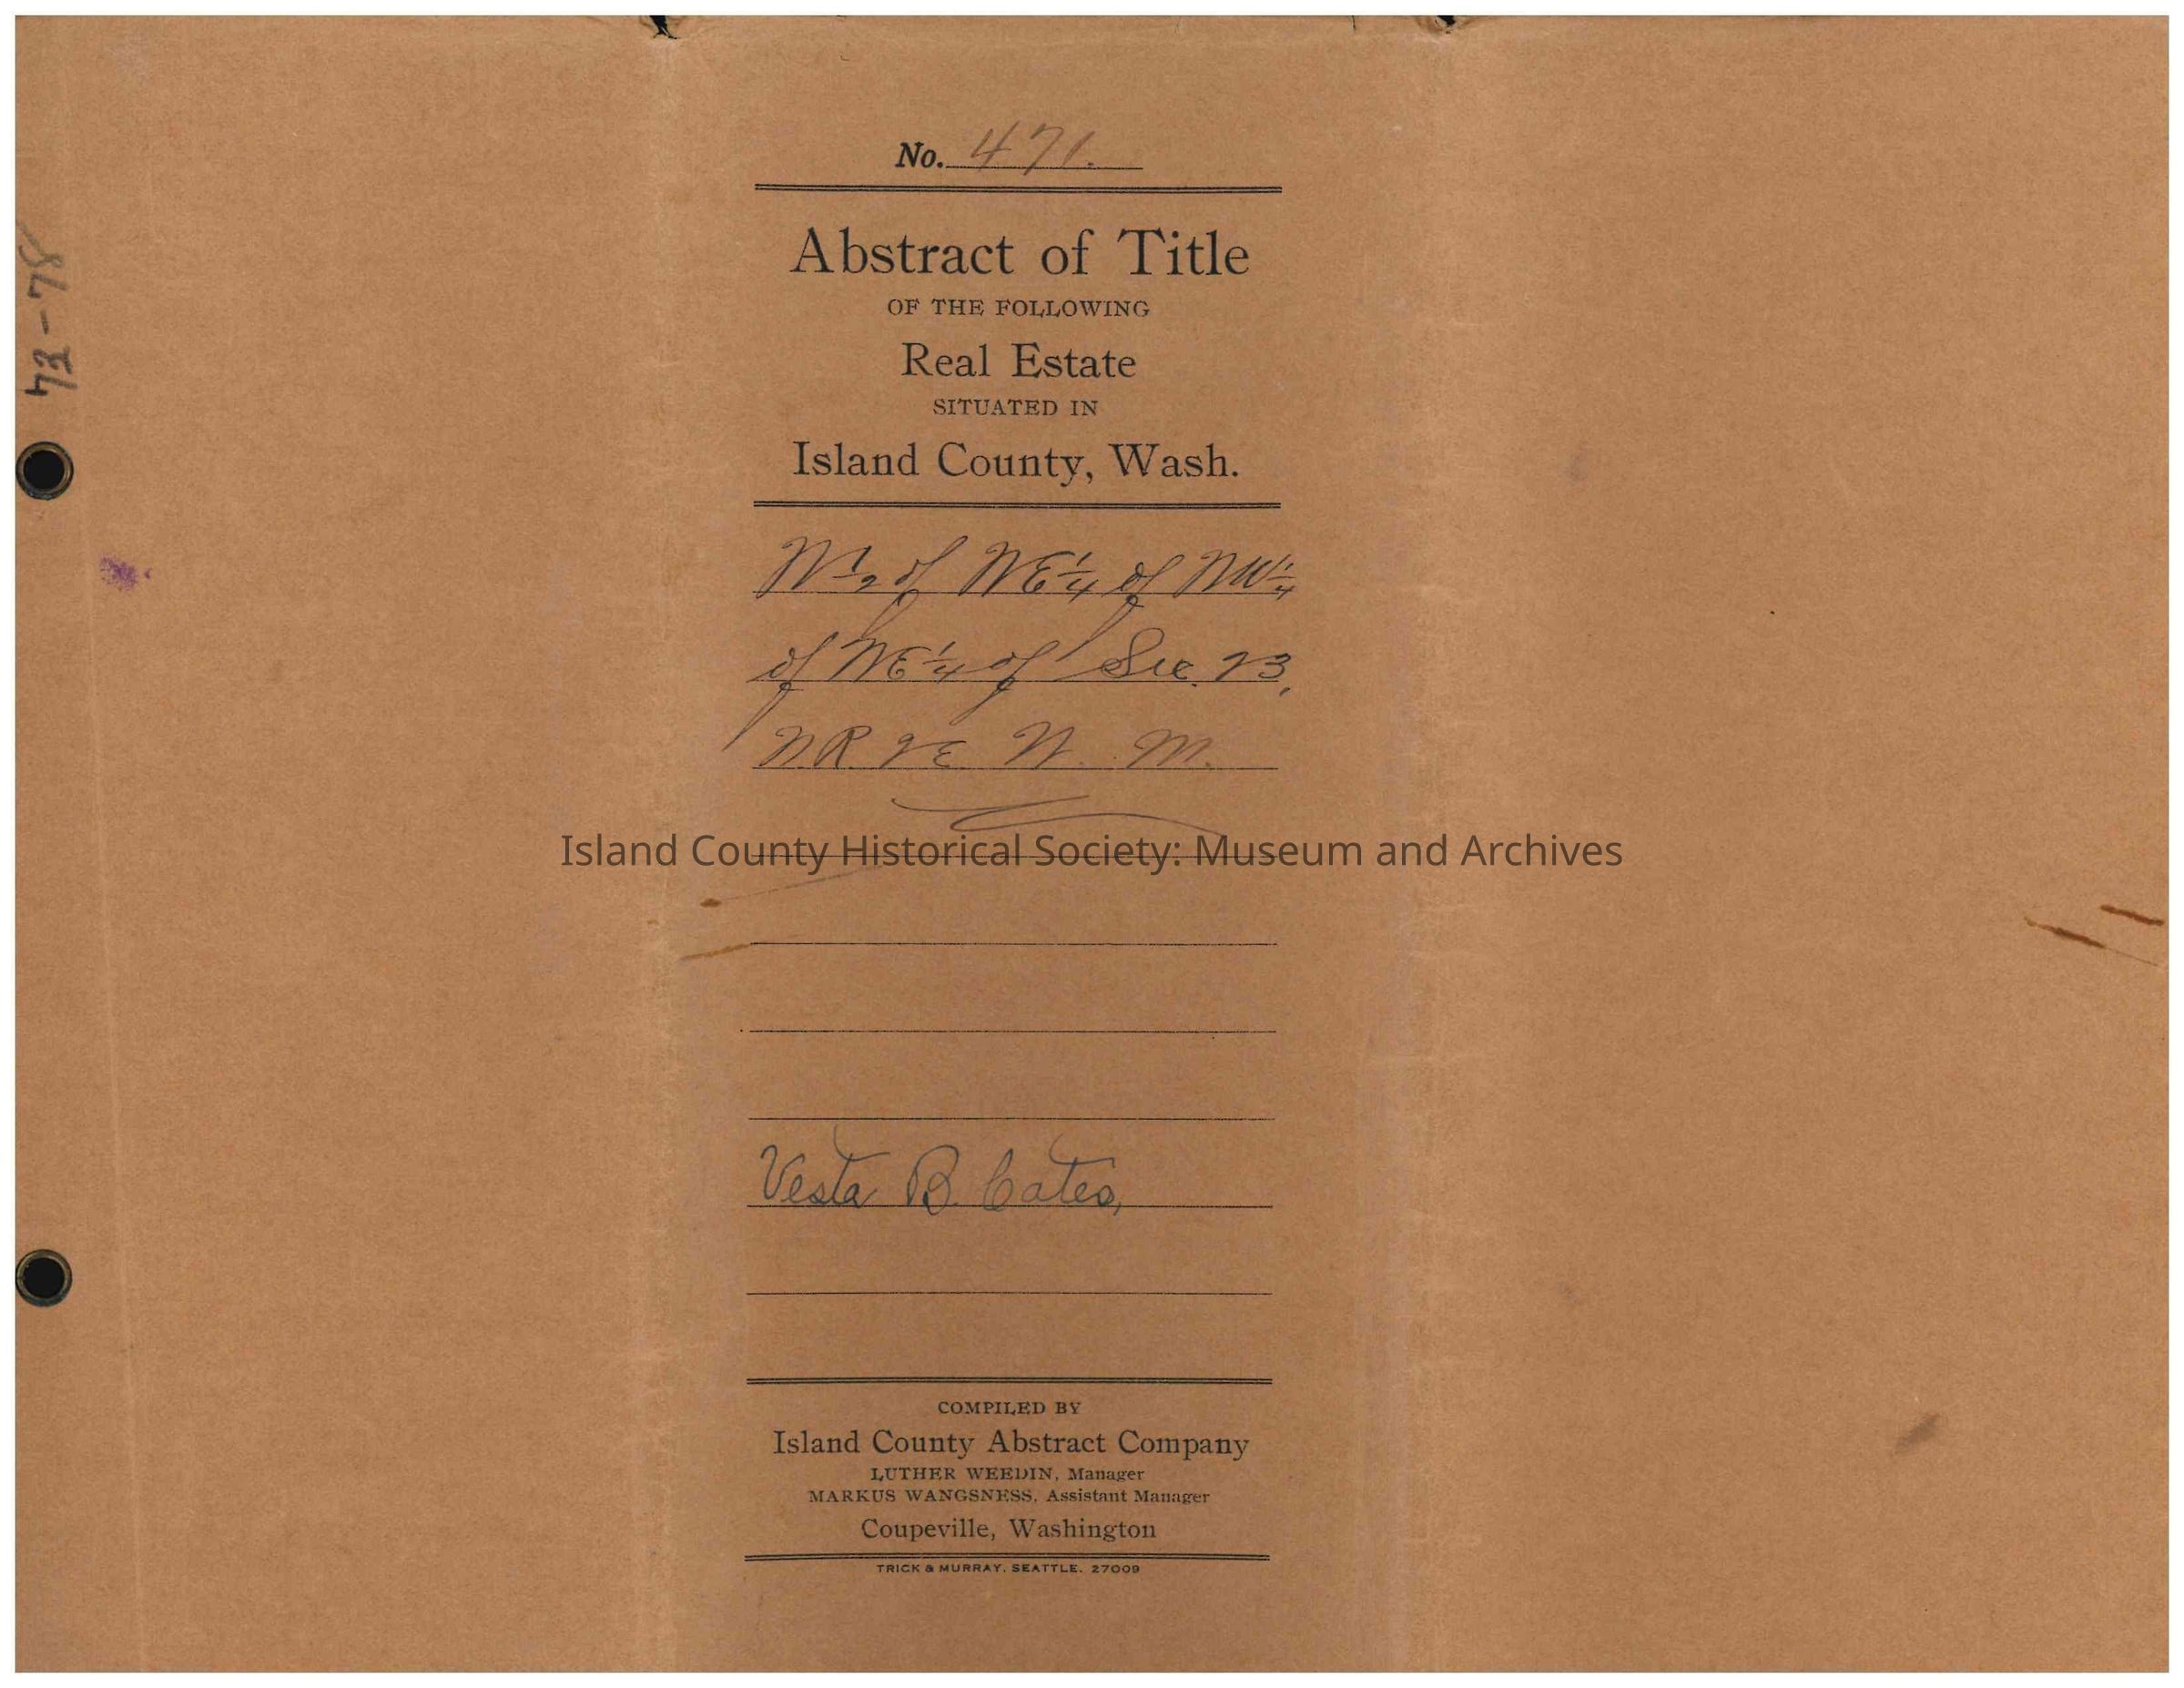 No. 471.
Abstract of Title
OF THE FOLLOWING
Real Estate
SITUATED IN
Island County, Wash.
of NE 1/4 of NW 1/4
of NE 1/4 of Sec. 23,
R 2 E W. M.
Island County Historical Society: Museum and Archives
Vesta B. Cates,
COMPILED BY
Island County Abstract Company
LUTHER WEEDIN, Manager
MARKUS WANGSNESS, Assistant Manager
Coupeville, Washington
TRICK & MURRAY, SEATTLE. 27009
43-78